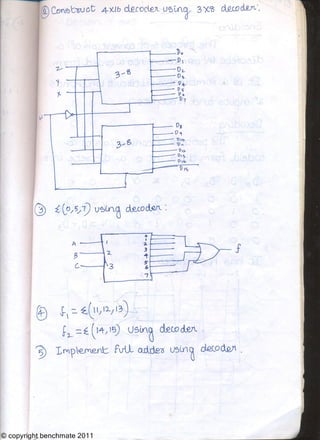 ② Construct 4X16 decoder using 3X8 decoder:
Z
Y
X
3-8
D0
D1
D2
D3
D4
D5
D6
D7
3-8
D8
D9
D10
D11
D12
D13
D14
D15
③ Σ(0,5,7) using decoder:
A
B
C
1
2
3
0
1
2
3
4
5
6
7
f
④ f1 = Σ(11,12,13)
f2 = Σ(14,15) using decoder.
⑤ Implement full adder using decoder.
© copyright benchmate 2011